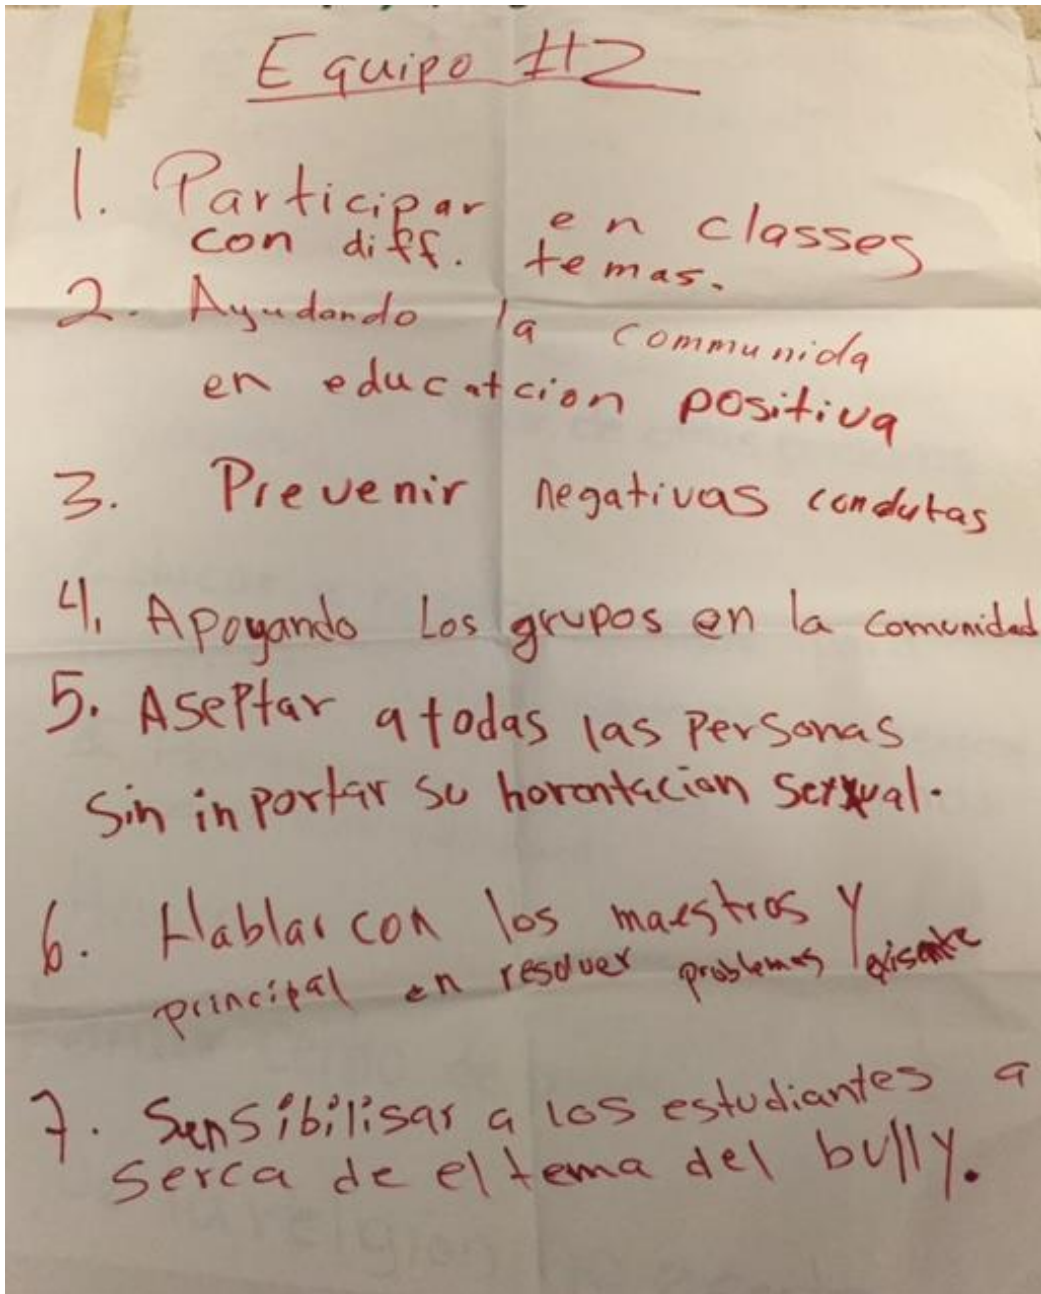 Equipo #2
1. Participar en classes
con diff. temas.
2. Ayudando la communida
en educatcion positiva
3. Prevenir negativas condutas
4. Apoyando Los grupos en la comunidad
5. Aseptar a todas las personas
Sin inportar su horontacion Sexxual.
6. Hablar con los maestros y
principal en resolver problemas existente
7. Sensibilisar a los estudiantes a
serca de el tema del bully.